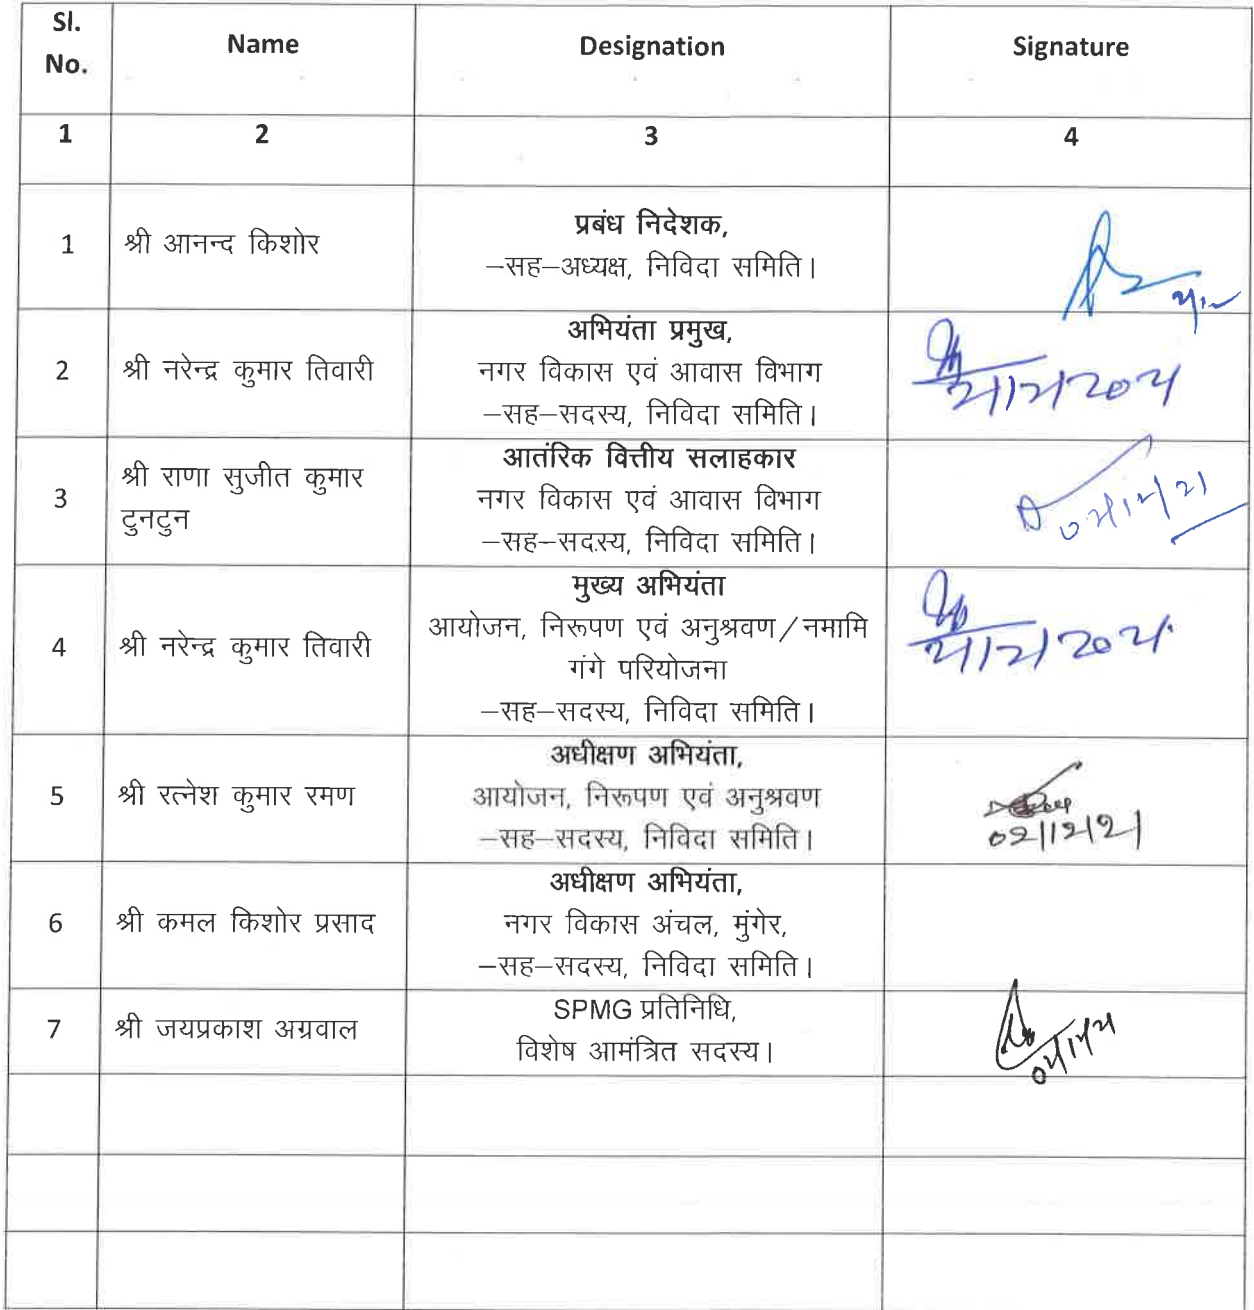 Sl.
No.
Name
Designation
Signature
1
2
3
4
1
श्री आनन्द किशोर
प्रबंध निदेशक,
–सह–अध्यक्ष, निविदा समिति।
2
श्री नरेन्द्र कुमार तिवारी
अभियंता प्रमुख,
नगर विकास एवं आवास विभाग
–सह–सदस्य, निविदा समिति।
3
श्री राणा सुजीत कुमार
टुनटुन
आतंरिक वित्तीय सलाहकार
नगर विकास एवं आवास विभाग
–सह–सदस्य, निविदा समिति।
4
श्री नरेन्द्र कुमार तिवारी
मुख्य अभियंता
आयोजन, निरूपण एवं अनुश्रवण/नमामि
गंगे परियोजना
–सह–सदस्य, निविदा समिति।
5
श्री रत्नेश कुमार रमण
अधीक्षण अभियंता,
आयोजन, निरूपण एवं अनुश्रवण
–सह–सदस्य, निविदा समिति।
02/12/21
6
श्री कमल किशोर प्रसाद
अधीक्षण अभियंता,
नगर विकास अंचल, मुंगेर,
–सह–सदस्य, निविदा समिति।
7
श्री जयप्रकाश अग्रवाल
SPMG प्रतिनिधि,
विशेष आमंत्रित सदस्य।